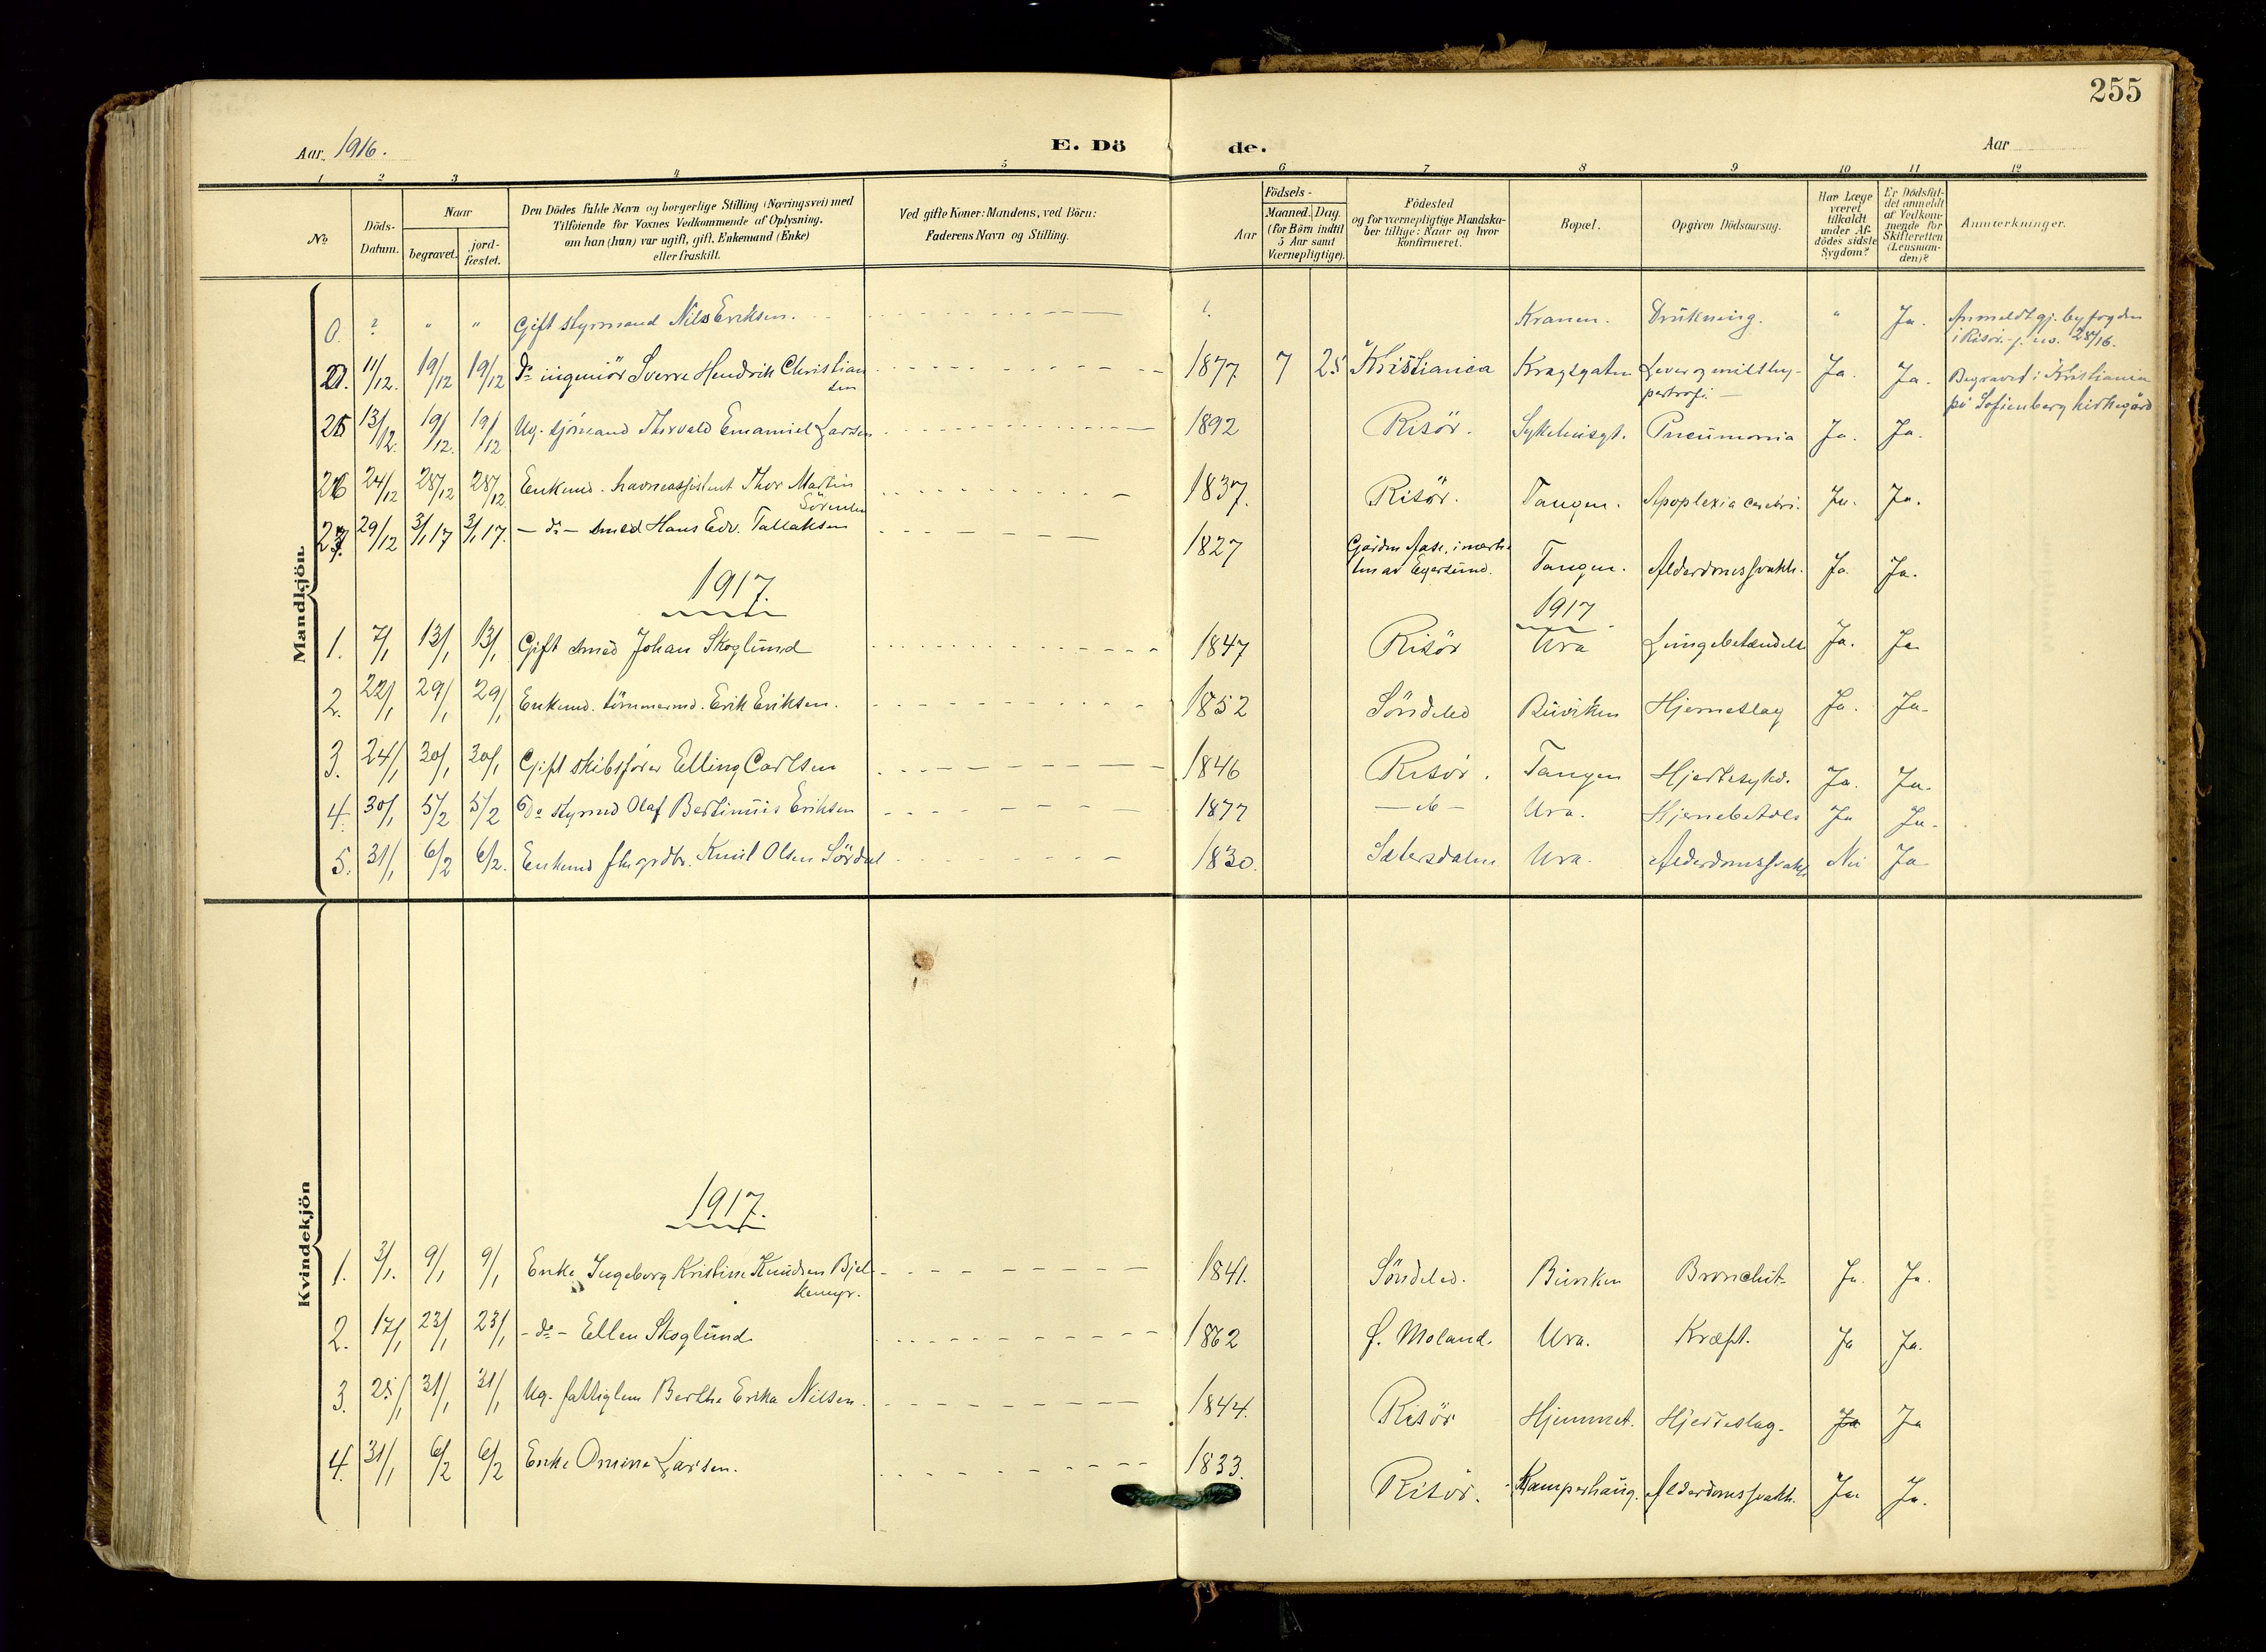 255
Aar 1916.
E. Dö de.
Aar
1 2 3 4 5 6 7 8 9 10 11 12
No
Döds-Datum.
Naar
begravet. jord-fæstet.
Den Dödes fulde Navn og borgerlige Stilling (Næringsvei) med
Tilföiende for Voxnes Vedkommende af Oplysning,
om han (hun) var ugift, gift, Enkemand (Enke)
eller fraskilt.
Ved gifte Koner: Mandens, ved Börn:
Faderens Navn og Stilling.
Födsels-
Aar
Maaned. Dag.
(for Börn indtil
5 Aar samt
Værnepligtige).
Födested
og for værnepligtige Mandska-
ber tillige: Naar og hvor
konfirmeret.
Bopæl.
Opgiven Dödsaarsag.
Har Læge
været
tilkaldt
under Af-
dödes sidste
Sygdom?
Er Dödsfal-
det anmeldt
af Vedkom-
mende for
Skifteretten
(Lensman-
den)?
Anmærkninger.
Mandkjön.
0. ? " " Gift styrmand Nils Eriksen. ? Kranen. Drukning. " Ja. Anmeldt gj. byfogden
i Risör
11/12. 19/12 19/12 do ingeniör Sverre Hendrik Christian
sen 1877 7 25 Kristiania Kragsgaten Lever og milthy-
pertrofi. Ja. Ja. Begravet i Kristiania
på Sofienberg kirkegård
25 13/12. 19/12. 19/12 Ug. sjömand Thorvald Emanuel Larsen 1892 Risör. Sykehusgt. Pneumonia Ja. Ja.
26 24/12 28/12 28/12 Enkemd. havneassistent Thor Martin
Sörensen 1837. Risör. Tangen. Apoplexia cerebri. Ja. Ja.
27. 29/12 3/1 17 3/1 17. - do - smed Hans Edv. Tallaksen 1827 Gården Aase, i nærhe-
ten av Egersund. Tangen. Alderdomssvakh. Ja Ja.
1917. 1917.
1. 7/1 13/1 13/1 Gift smed Johan Skoglund 1847 Risör Ura Lungebetændelse Ja. Ja
2. 22/1 29/1 29/1 Enkemd. tömmermd. Erik Eriksen. 1852 Söndeled Buviken Hjerneslag Ja. Ja.
3. 24/1 30/1 30/1 Gift skibsförer Elling Carlsen 1846 Risör. Tangen Hjertesykd. Ja. Ja.
4. 30/1 5/2 5/2 do styrmd Olaf Bertinius Eriksen 1877 - do - Ura. Ja Ja.
5. 31/1 6/2 6/2. Enkemd fhv grdbr. Knut Olsen Sördal 1830. Sætersdalen Ura. Alderdomssvakh. Nei Ja
Kvindekjön
1917.
1. 3/1. 9/1 9/1 Enke Ingeborg Kristine Knudsen Bjel-
kemyr. 1841. Söndeled. Buviken Bronchit. Ja. Ja.
2. 17/1 23/1 23/1 - do - Ellen Skoglund 1862 Ø. Moland. Ura. Kræft. Ja Ja.
3. 25/1 31/1 31/1 Ug. fattiglem Berthe Erika Nilsen. 1844. Risör Hjemmet. Hjerteslag. Ja Ja
4. 31/1 6/2 6/2 Enke Omine Larsen. 1833. Risör. Kamperhaug. Alderdomssvakh. Ja Ja.